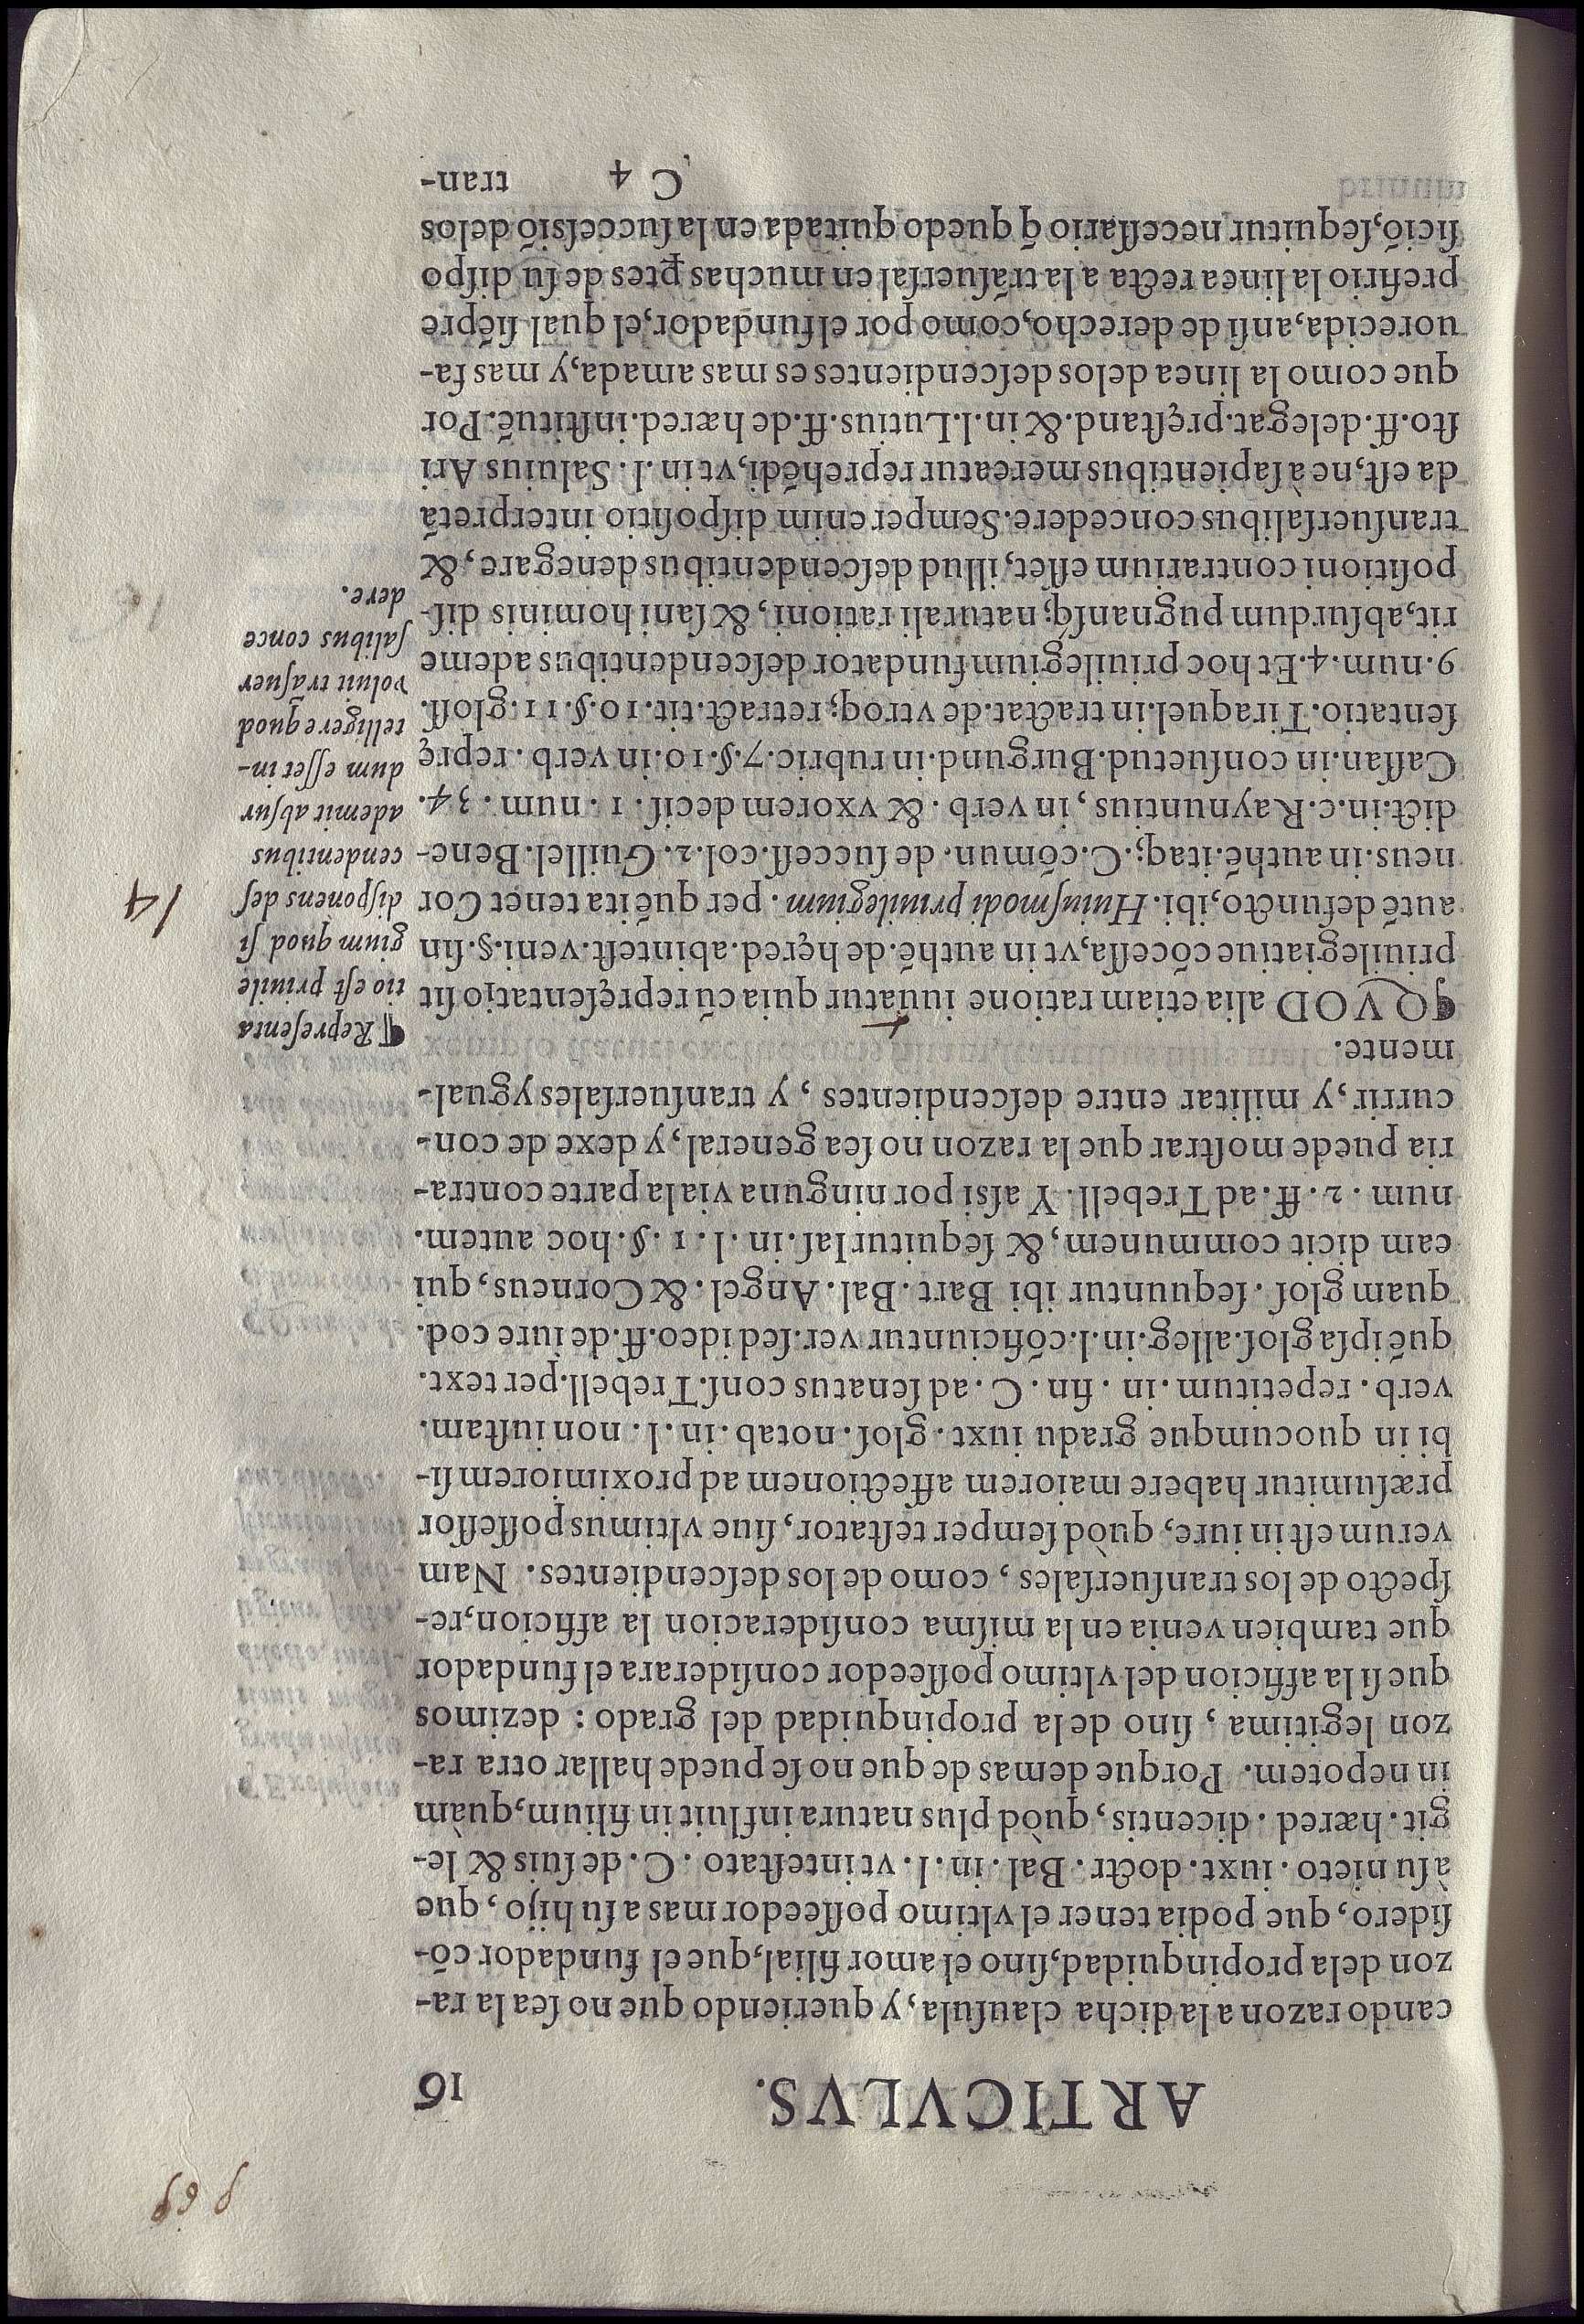 ARTICVLVS. 16
cando razon a la dicha clauſula, y queriendo que no ſea la ra-
zon de la propinquidad, ſino el amor filial, que el fundador cõ-
ſidero, que podia tener el vltimo poſſeedor mas a ſu hijo, que
à ſu nieto. iuxt. doctr. Bal. in. l. vt inteſtato. C. de ſuis & le-
git. hæred. dicentis, quòd plus natura influit in filium, quàm
in nepotem. Porque demas de que no ſe puede hallar otra ra-
zon legitima, ſino de la propinquidad del grado: dezimos
que ſi la afficion del vltimo poſſeedor conſiderara el fundador
que tambien venia en la miſma conſideracion la afficion, re-
ſpecto de los tranſuerſales, como de los deſcendientes. Nam
verum eſt in iure, quòd ſemper teſtator, ſiue vltimus poſſeſſor
præſumitur habere maiorem affectionem ad proximiorem ſi-
bi in quocumque gradu iuxt. gloſ. notab. in. l. non iuſtam.
verb. repetitum. in. fin. C. ad ſenatus conſ. Trebell. per text.
quẽ ipſa gloſ. alleg. in. l. cõficiuntur ver. ſed ideo. ff. de iure cod.
quam gloſ. ſequuntur ibi Bart. Bal. Angel. & Corneus, qui
eam dicit communem, & ſequitur Iaſ. in. l. 1. §. hoc autem.
num. 2. ff. ad Trebell. Y aſsi por ninguna via la parte contra-
ria puede moſtrar que la razon no ſea general, y dexe de con-
currir, y militar entre deſcendientes, y tranſuerſales ygual-
mente.
¶QVOD alia etiam ratione iuuatur quia cũ repręſentatio ſit
priuilegiatiue cõceſſa, vt in authẽ. de hęred. ab inteſt. veni. §. ſin
autẽ defuncto, ibi. Huiuſmodi priuilegium. per quẽ ita tenet Cor
neus. in authẽ. itaq;. C. cõmun. de ſucceſſ. col. 2. Guillel. Bene-
dict. in. c. Raynuntius, in verb. & vxorem deciſ. 1. num. 34.
Caſſan. in conſuetud. Burgund. in rubric. 7. §. 10. in verb. reprę
ſentatio. Tiraquel. in tractat. de vtroq; retract. tit. 10. §. 11. gloſſ.
9. num. 4. Et hoc priuilegium fundator deſcendentibus ademe
rit, abſurdum pugnanſq; naturali rationi, & ſani hominis diſ-
poſitioni contrarium eſſet, illud deſcendentibus denegare, &
tranſuerſalibus concedere. Semper enim diſpoſitio interpretã
da eſt, ne à ſapientibus mereatur reprehẽdi, vt in. l. Saluius Ari
ſto. ff. de legat. pręſtand. & in. l. Lutius. ff. de hæred. inſtituẽ. Por
que como la linea de los deſcendientes es mas amada, y mas fa-
uorecida, anſi de derecho, como por el fundador, el qual ſiẽpre
prefirio la linea recta a la trãſuerſal en muchas ꝑtes de ſu diſpo
ſiciõ, ſequitur neceſſario q̃ quedo quitada en la ſucceſsiõ de los
C 4 tran-
¶ Repreſenta
tio eſt priuile
gium quod ſi
diſponens deſ
cendentibus
ademit abſur
dum eſſet in-
telligere quod
voluit trãſuer
ſalibus conce
dere.
14